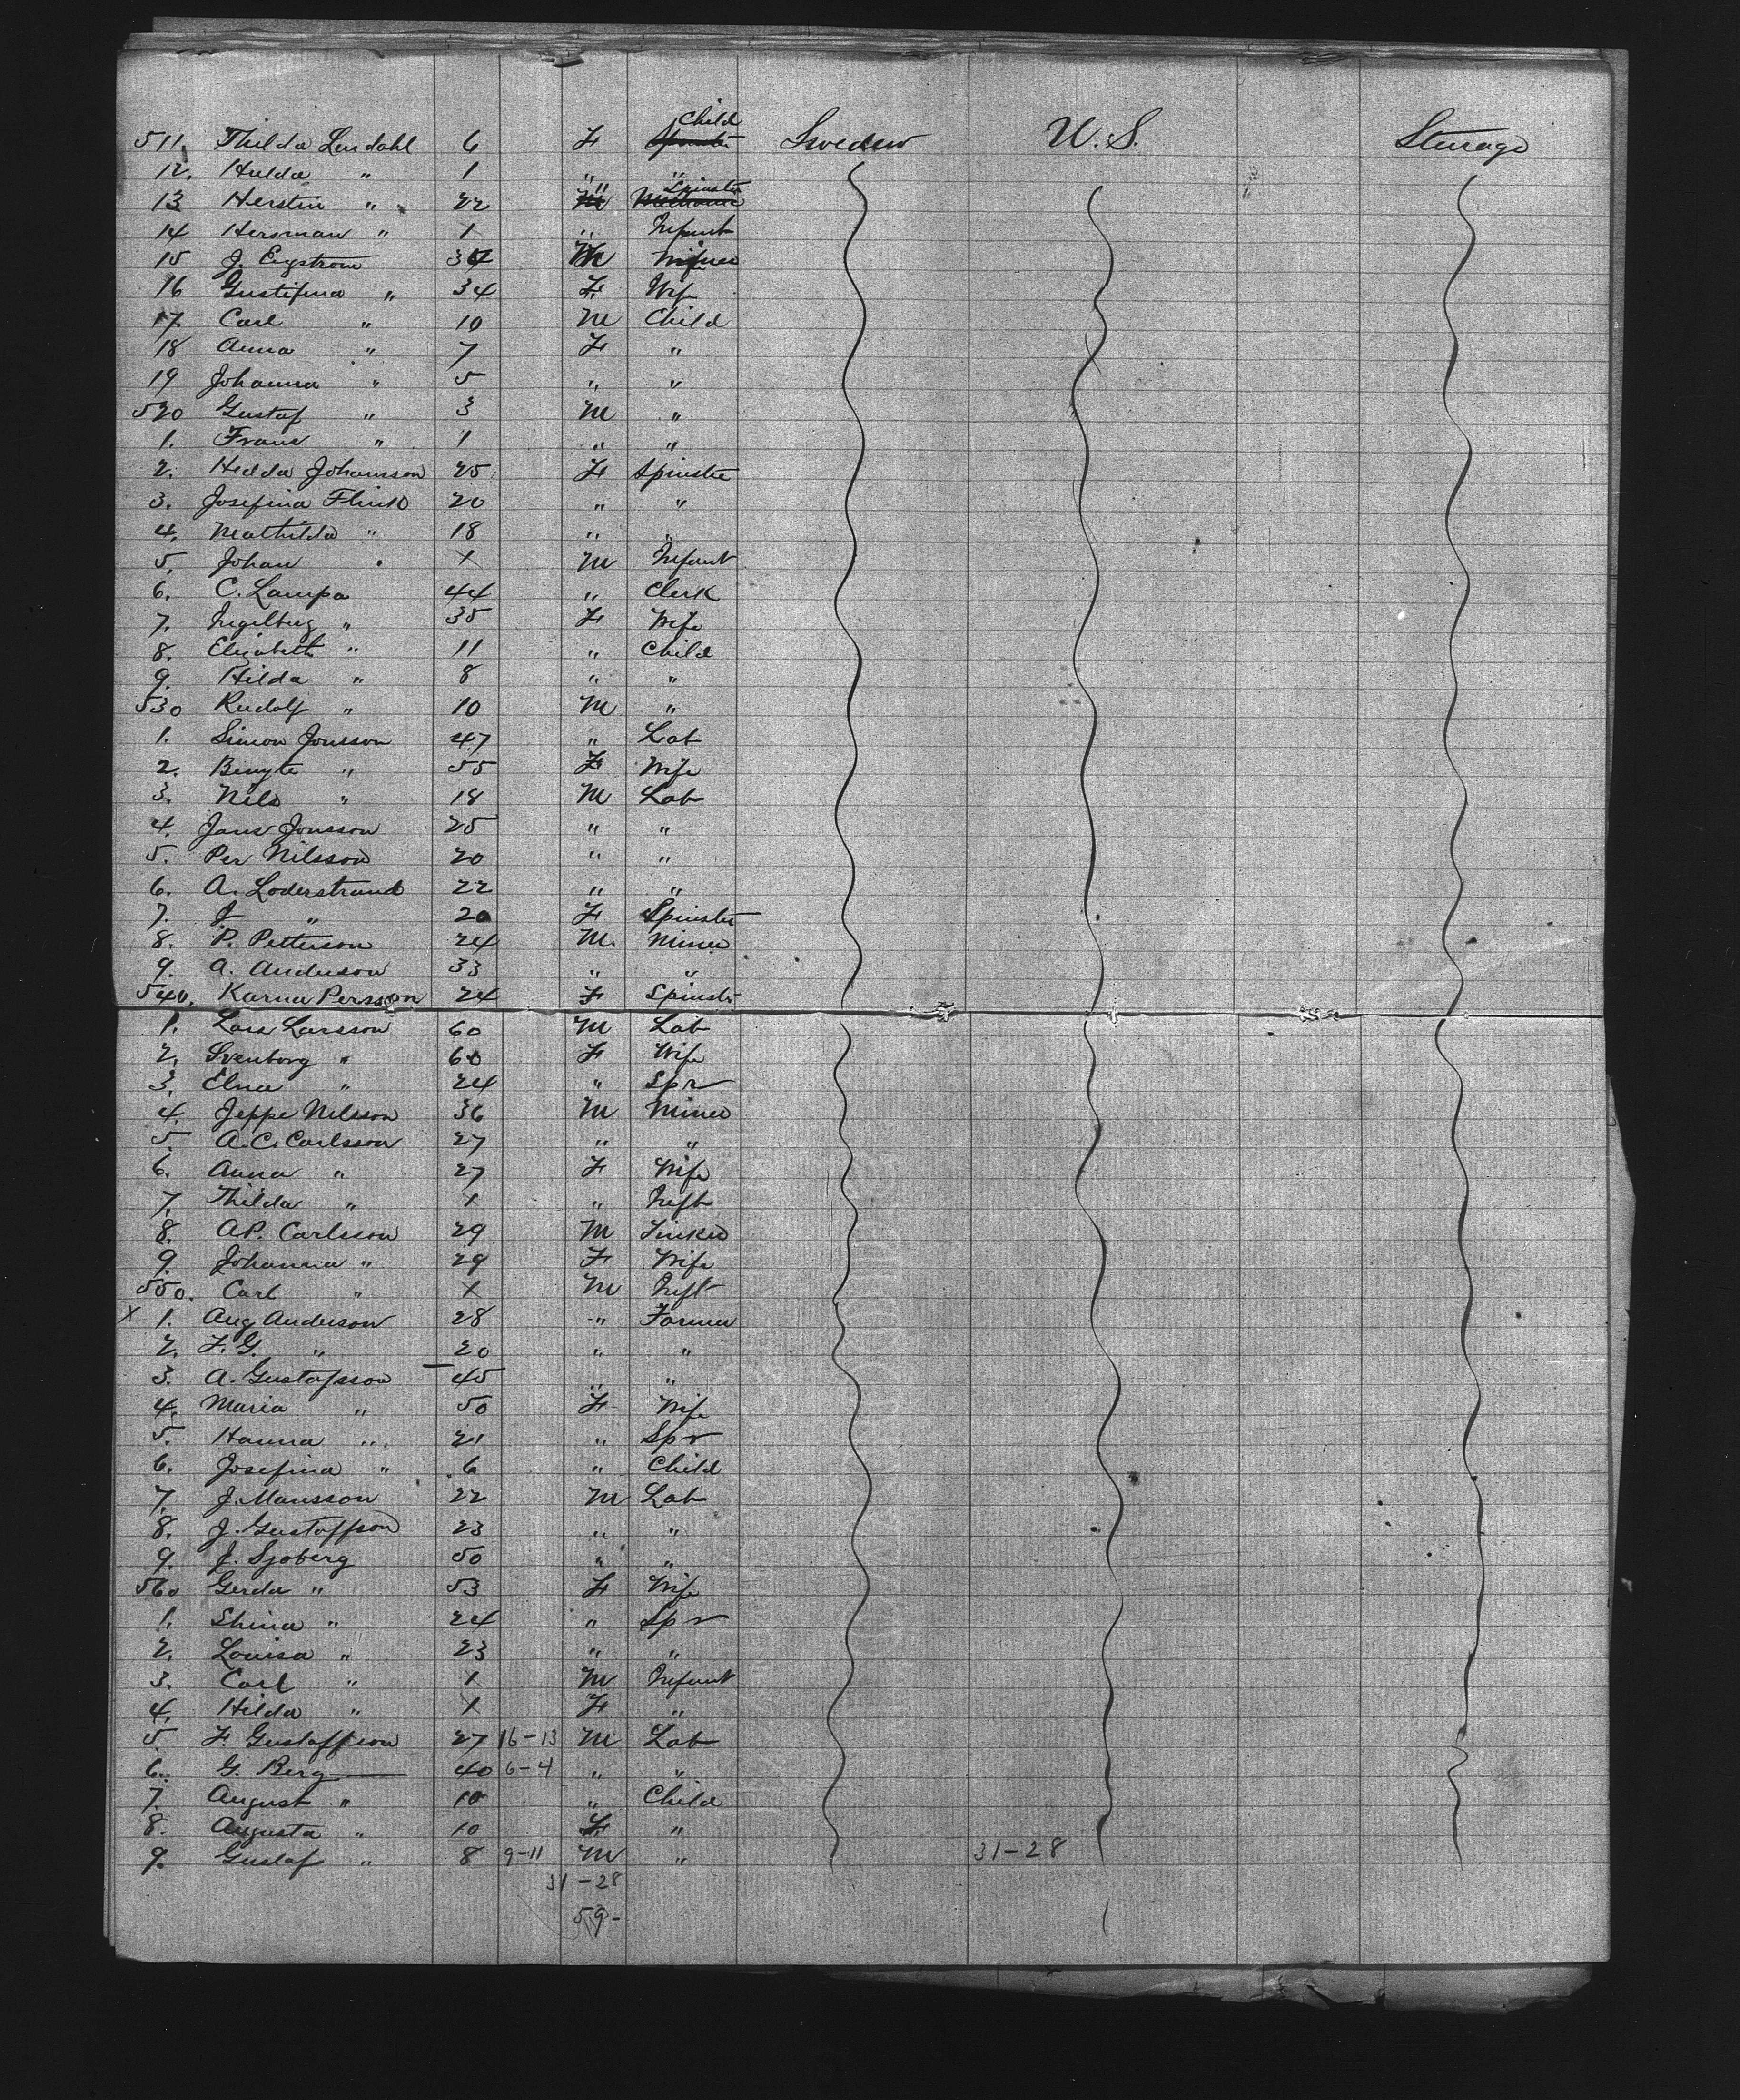 511. Thilda Lendahl 6 F Child Sweden U.S. Steerage
12. Hulda " 1 " "
13 Herstin " 22 " Spinster
14 Hersman " 1 " Infant
15 J. Engstrom 34 M Miner
16 Gustifina " 34 F. Wife
17. Carl " 10 M Child
18 Anna " 7 F "
19 Johanna " 5 " "
520 Gustaf " 3 M "
1. Frans " 1 " "
2. Hedda Johansson 25 F Spinster
3. Josefina Flink 20 " "
4. Mathilda " 18 " "
5. Johan " X M Infant
6. C. Lampa 44 " Clerk
7. Ingelburg " 35 F Wife
8. Elizabeth " 11 " Child
9. Hilda " 8 " "
530 Rudolf " 10 M "
1. Simon Jonsson 47 " Lab
2. Bengta " 55 F Wife
3. Nils " 18 M Lab
4. Jans Jonsson 25 " "
5. Per Nilsson 20 " "
6. A. Loderstrand 22 " "
7. J " 20 F Spinster
8. P. Petterson 24 M. Miner
9. A. Anderson 33 " "
540. Karna Persson 24 F Spinster
1. Lars Larsson 60 M Lab
2. Svenborg " 60 F Wife
3. Elna " 24 " Spr
4. Jeppe Nilsson 36 M Miner
5 A. C. Carlsson 27 " "
6. Anna " 27 F Wife
7. Thilda " X " Inft
8. A.P. Carlsson 29 M Tinker
9. Johanna " 29 F Wife
550. Carl " X M Inft
X 1. Aug Anderson 28 " Farmer
2. F. G. " 20 " "
3. A. Gustafsson 45 " "
4. Maria " 50 F Wife
5. Hanna " 21 " Spr
6. Josefina " 6 " Child
7. J. Mansson 22 M Lab
8. J. Gustaffson 23 " "
9. J. Sjoberg 50 " "
560 Gerda " 53 F Wife
1. Shina " 24 " Spr
2. Louisa " 23 " "
3. Carl " X M Infant
4. Hilda " X F "
5. F. Gustaffson 27 16-13 M Lab
6. G. Berg 40 6-4 " "
7. August " 10 " Child
8. Augusta " 10 F "
9. Gustaf " 8 9-11 M " 31-28
31-28
59-